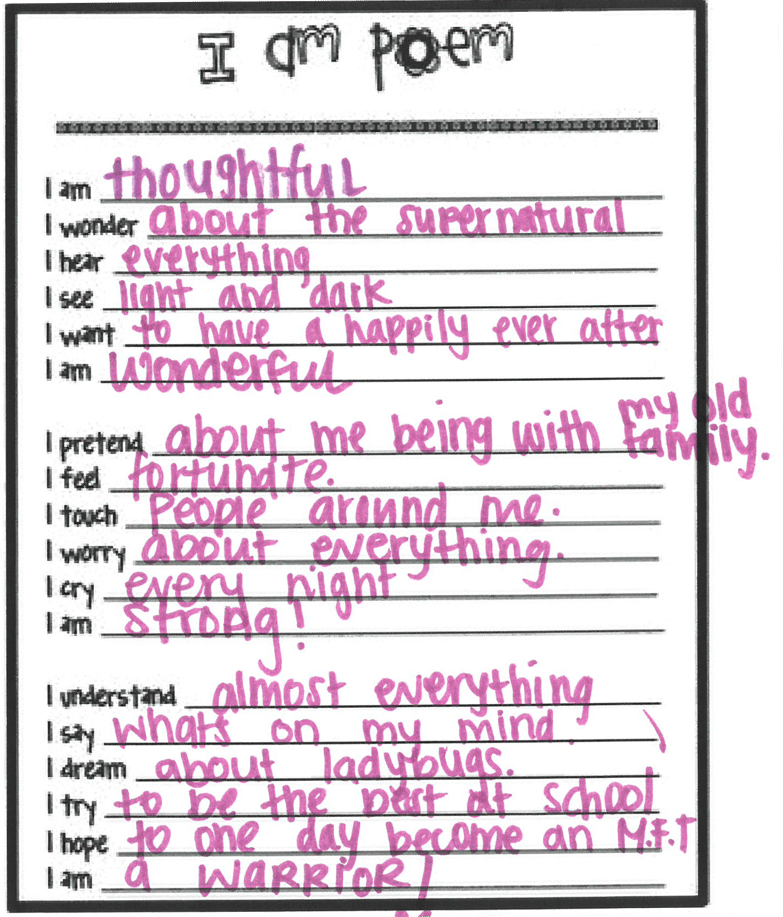 I am poem
I am thoughtful
I wonder about the supernatural
I hear everything
I see light and dark
I want to have a happily ever after
I am Wonderful
I pretend about me being with my old family.
I feel fortunate.
I touch People around me.
I worry about everything.
I cry every night
I am strong!
I understand almost everything
I say whats on my mind
I dream about ladybugs.
I try to be the best at school
I hope to one day become an M.F.T
I am a WARRIOR!